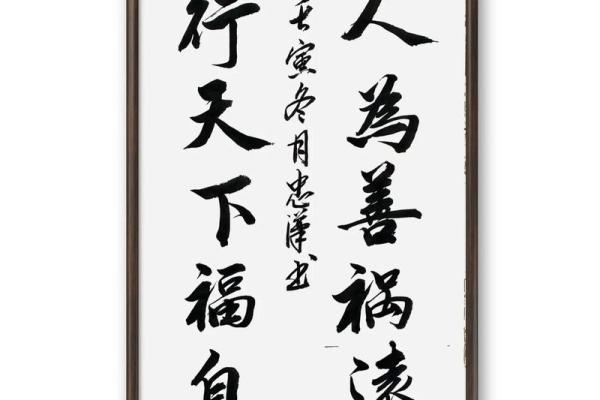 人為善祸遠
壬寅冬月忠漢书
行天下福自